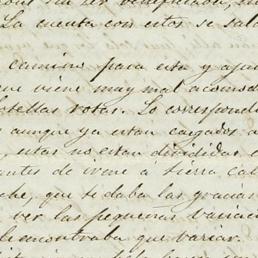 La cuenta con estos se sald
camino para esta y ajus
que viene muy mal acomod
botellas rotas. Lo correspond
aunque ya estan cargados a
estas no estan divididas e
de irme a tierra cal
che, que si daba las gracias
ver las pequeñas variaci
encontraba que variar.